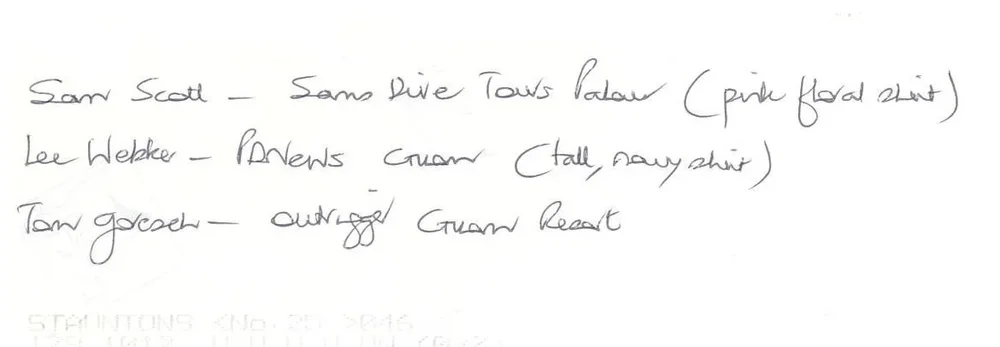 Sam Scott - Sams Dive Tours Palau (pink floral shirt)
Lee Webber - PDNews Guam (tall, navy shirt)
Tom - Outrigger Guam Resort
STAUNTONS <No. 25> >046